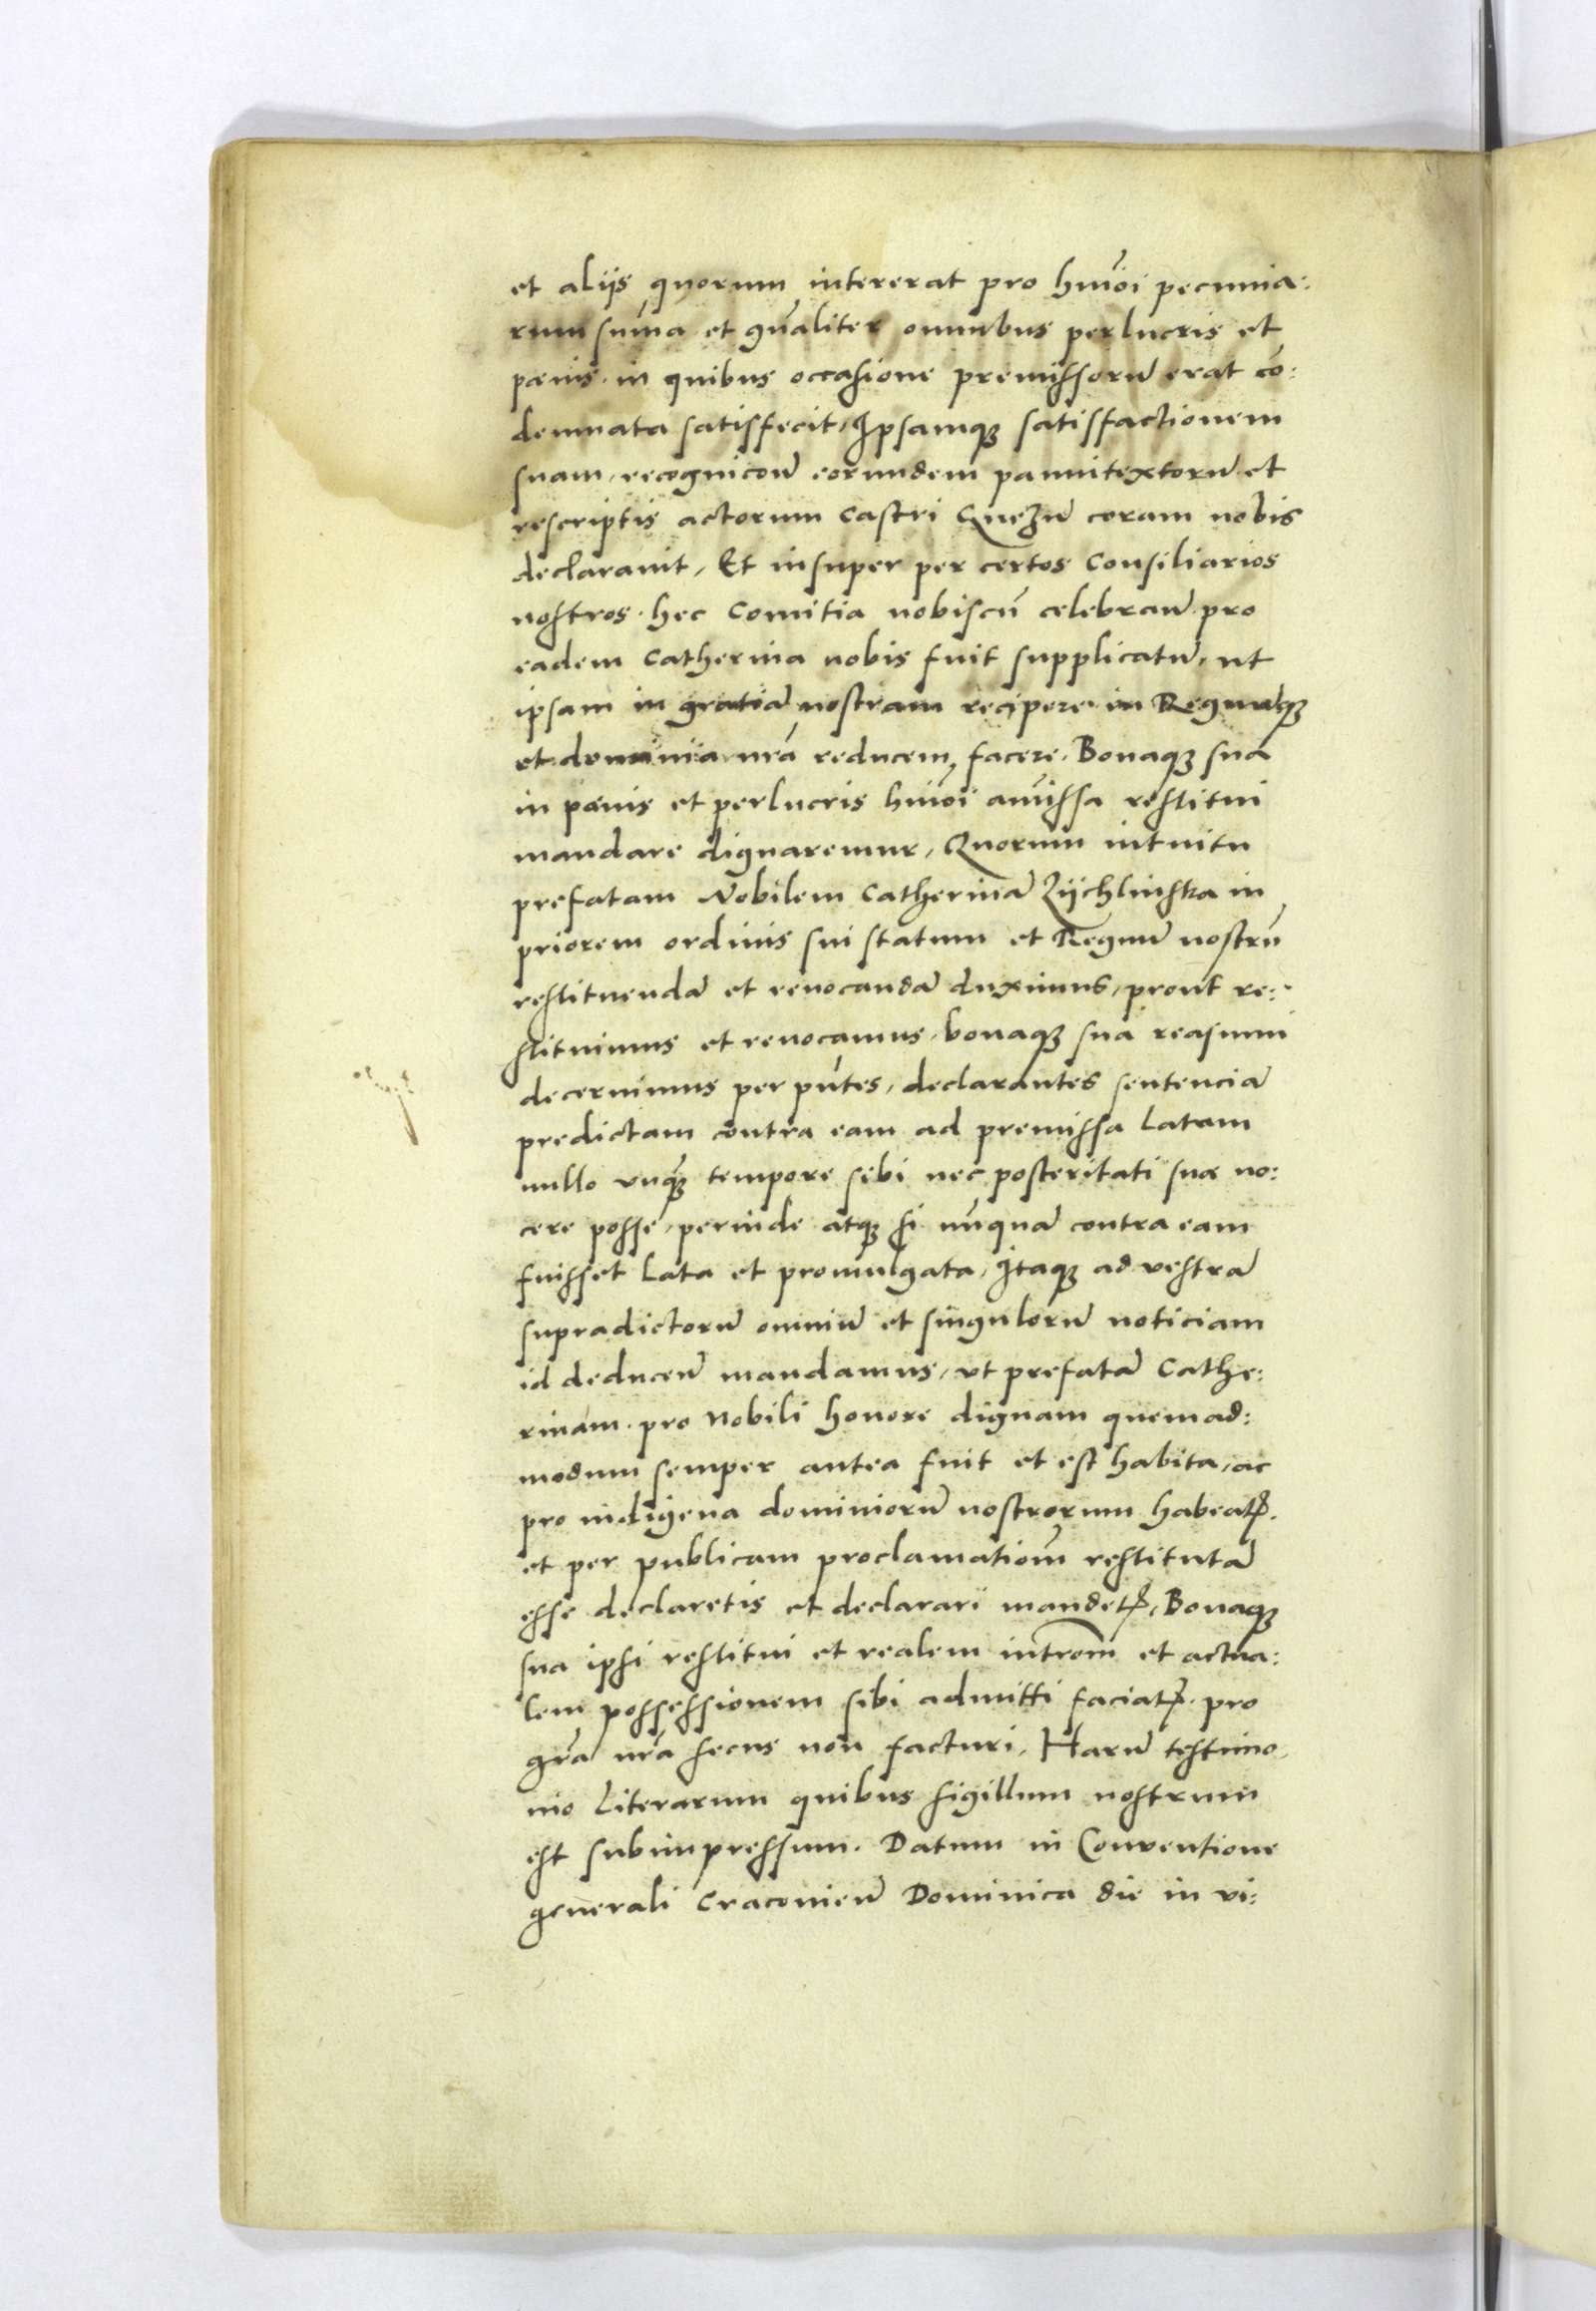 et aliis quorum intererat pro hmo͂i pecunia:
rum sum̃a et gn͂aliter omnibus perlucris et
pœnis in quibus occasione premissorum̃ erat co͂:
demnata satisfecit, Ipsamqꝫ satisfactionem
suam, recognicom̃ eorundem pannitextorum̃ et
rescriptis actorum Castri Gnezn̄ coram nobis
declaravit, Et insuper per certos Consiliarios
nostros hec Comitia nobiscum̃ celebran̄ pro
eadem Catherina nobis fuit supplicatum̃, ut
ipsam in gratiam̃ nostram recipere in Regnaqꝫ
et dominia nr̃a reducem facere. Bonaqꝫ sua
in pœnis et perlucris hmo͂i amissa restitui
mandare dignaremur, Quorum intuitu
prefatam Nobilem Catherinam̃ Zÿchlinska in
priorem ordinis sui statum et Regnum̃ nostrum̃
restituendam̃ et revocandam̃ duximus, prout re:
stituimus et revocamus, bonaqꝫ sua reasumi
decernimus per pn͂tes, declarantes sentenciam̃
predictam contra eam ad premissa latam
nullo unqꝫ tempore sibi nec posteritati suæ no:
cere posse, perinde atqꝫ si nun̄quam̃ contra eam
fuisset lata et promulgata, Itaqꝫ ad vestram̃
supradictorum̃ omnium̃ et singulorum̃ noticiam
id deducen̄ mandamus, ut prefatam̃ Cathe:
rinam pro Nobili honore dignam quemad:
modum semper antea fuit et est habita, ac
pro indigena dominiorum̃ nostrorum habeatꝭ.
et per publicam proclamationem̃ restitutam̃
esse declaretis et declarari mandetꝭ, Bonaqꝫ
sua ipsi restitui et realem introm̃ et actua:
lem possessionem sibi admitti faciatꝭ pro
gr̃a nr̃a secus non facturi, Harum̃ testimo
nio literarum quibus sigillum nostrum
est subimpressum. Datum in Conventione
generali Cracovien̄ Dominica die in vi: